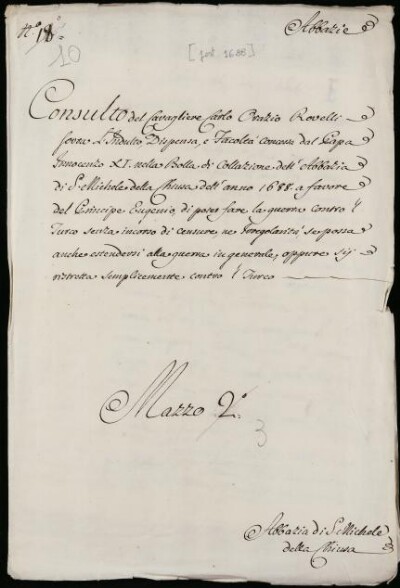 N.° 18.°
Abbazie
10
[post 1688]
Consulto del Cavagliere Carlo Orazio Rovelli
sovra L'Indulto, Dispensa, e Facoltà concessa dal Papa
Innocenzo XI. nella Bolla di Collazione dell'Abbazia
di S. Michele della Chiusa dell'anno 1688. a favore
del Principe Eugenio, di poter fare la guerra contro 'l
Turco senza incorso di censure, ne Irregolarità se possa
anche estendersi alla guerra in generale, oppure sij
ristretta semplicemente contro 'l Turco
Mazzo 2.°
3
Abbazia di S. Michele
della Chiusa
3